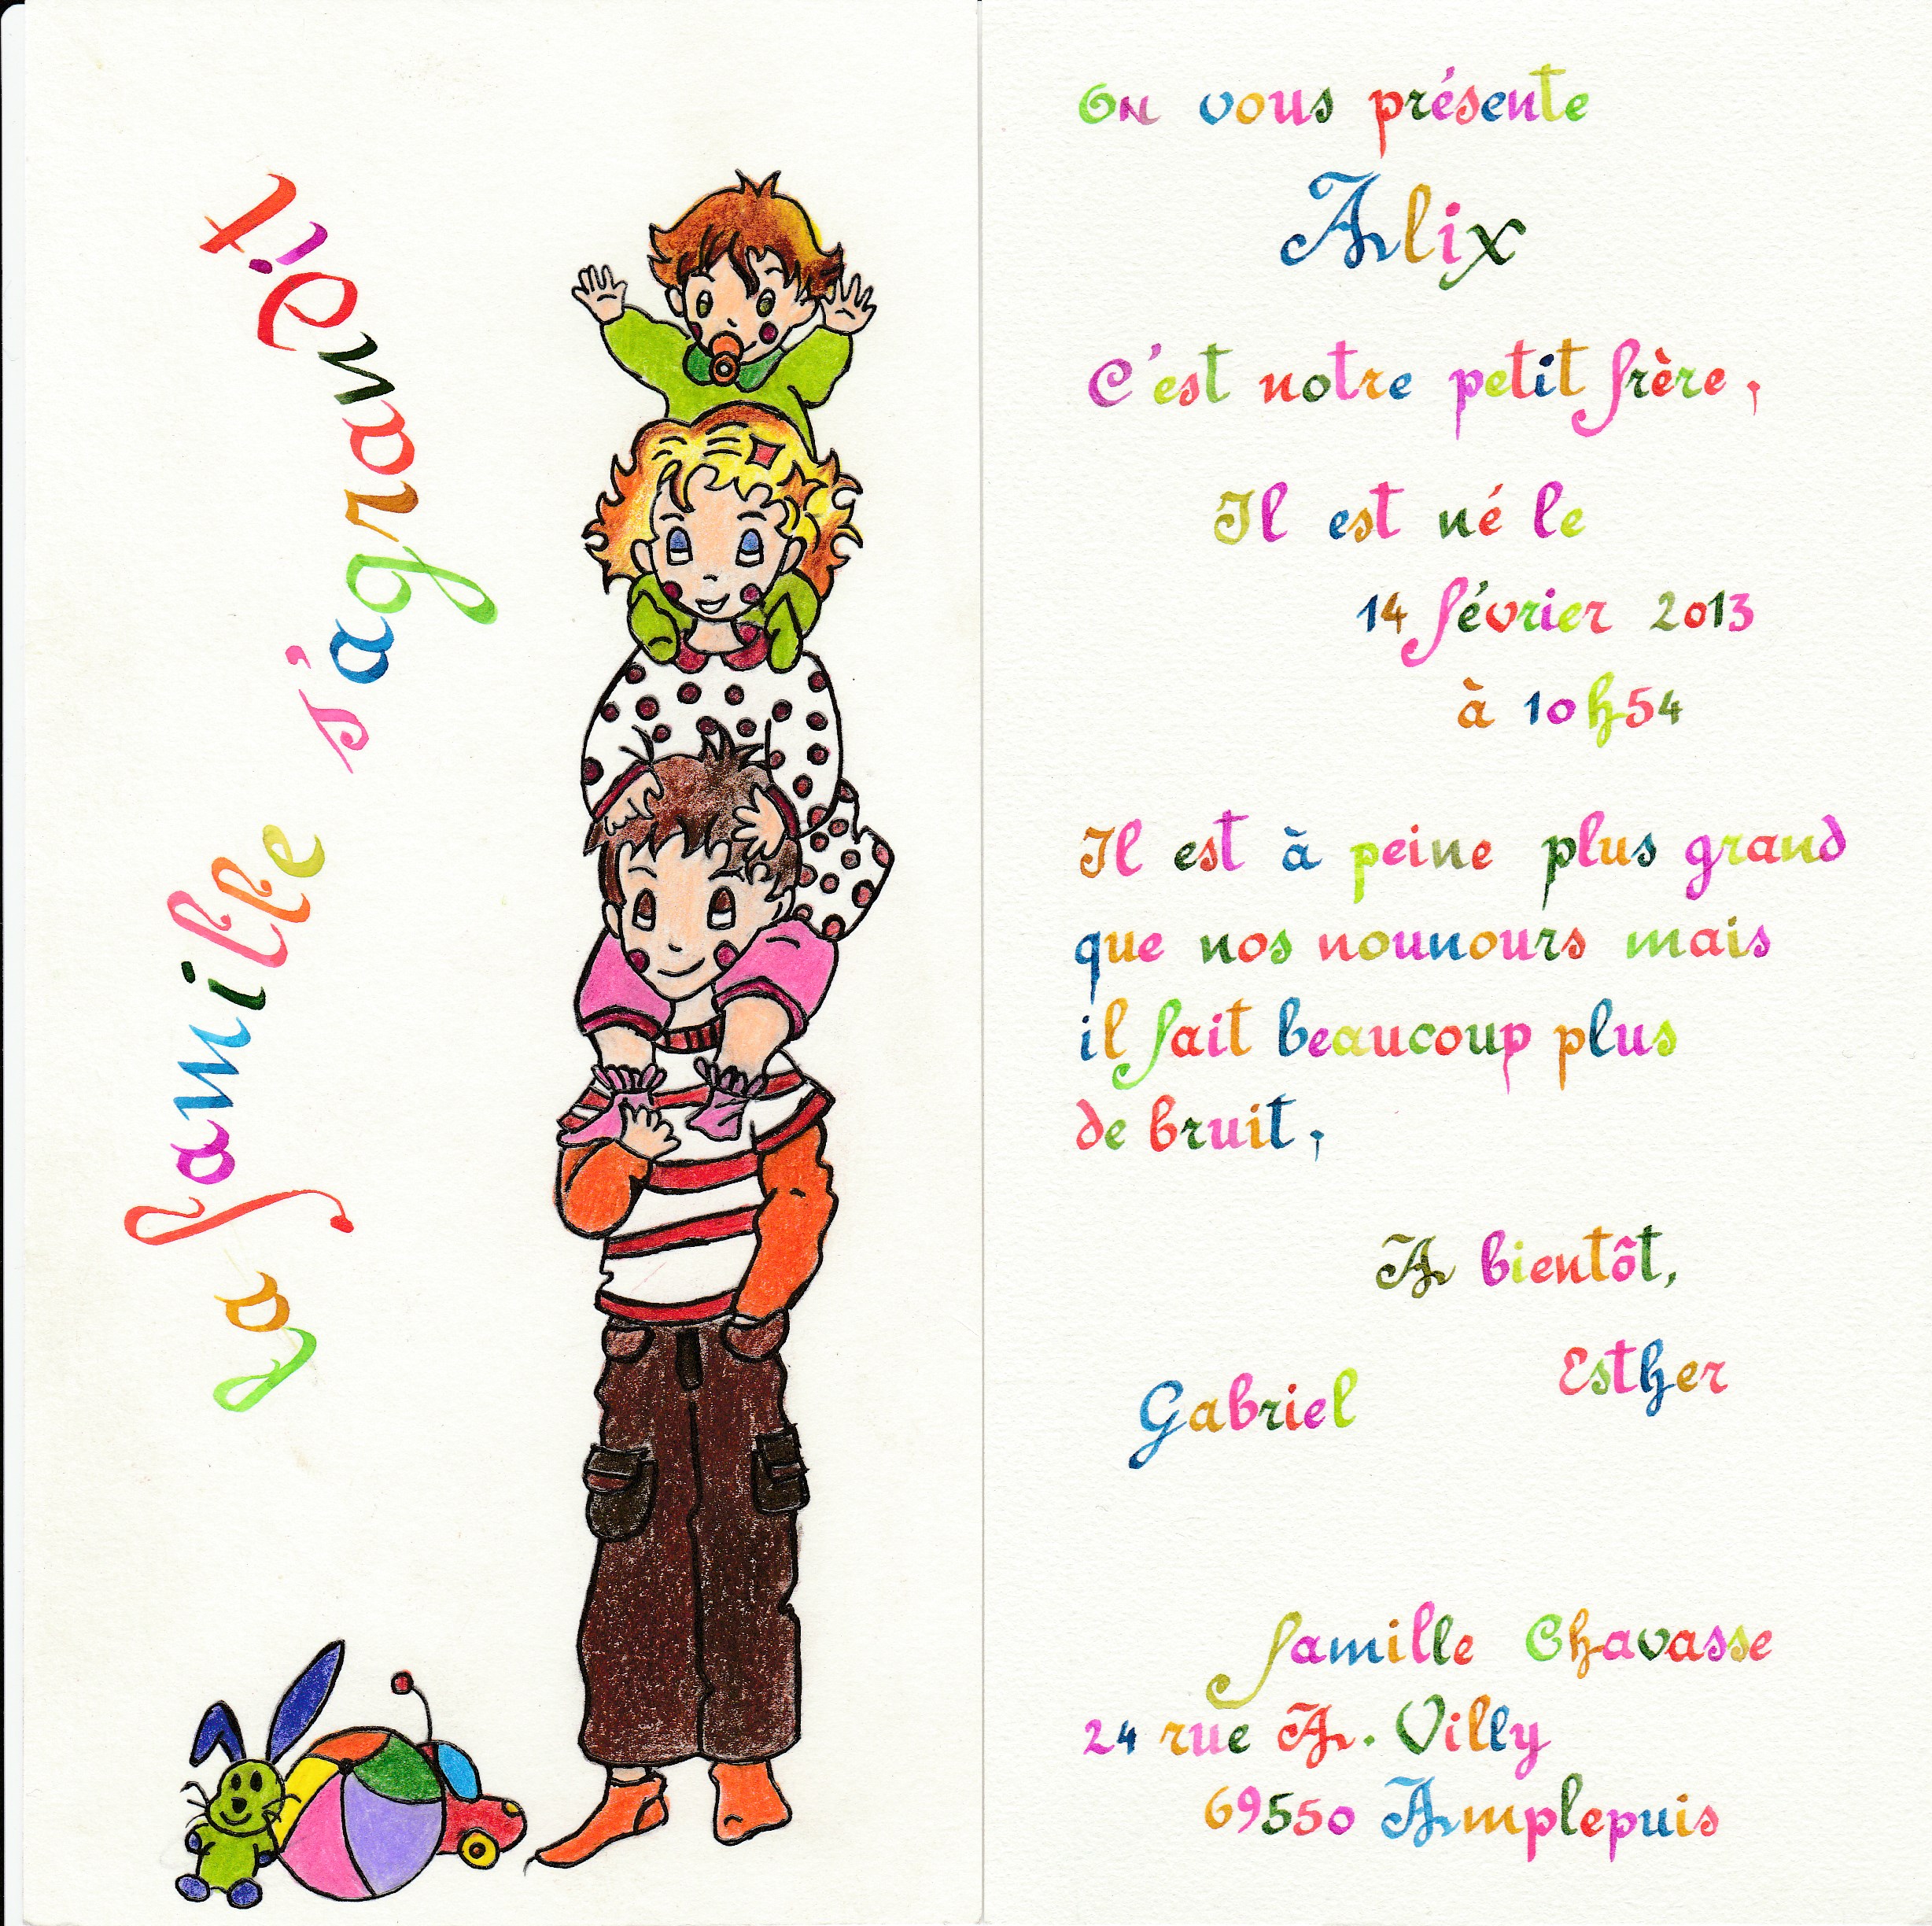 La famille s'agrandit
On vous présente
Alix
C'est notre petit frère,
Il est né le
14 février 2013
à 10h54
Il est à peine plus grand
que nos nounours mais
il fait beaucoup plus
de bruit,
A bientôt,
Esther
Gabriel
famille Chavasse
24 rue A. Villy
69550 Amplepuis